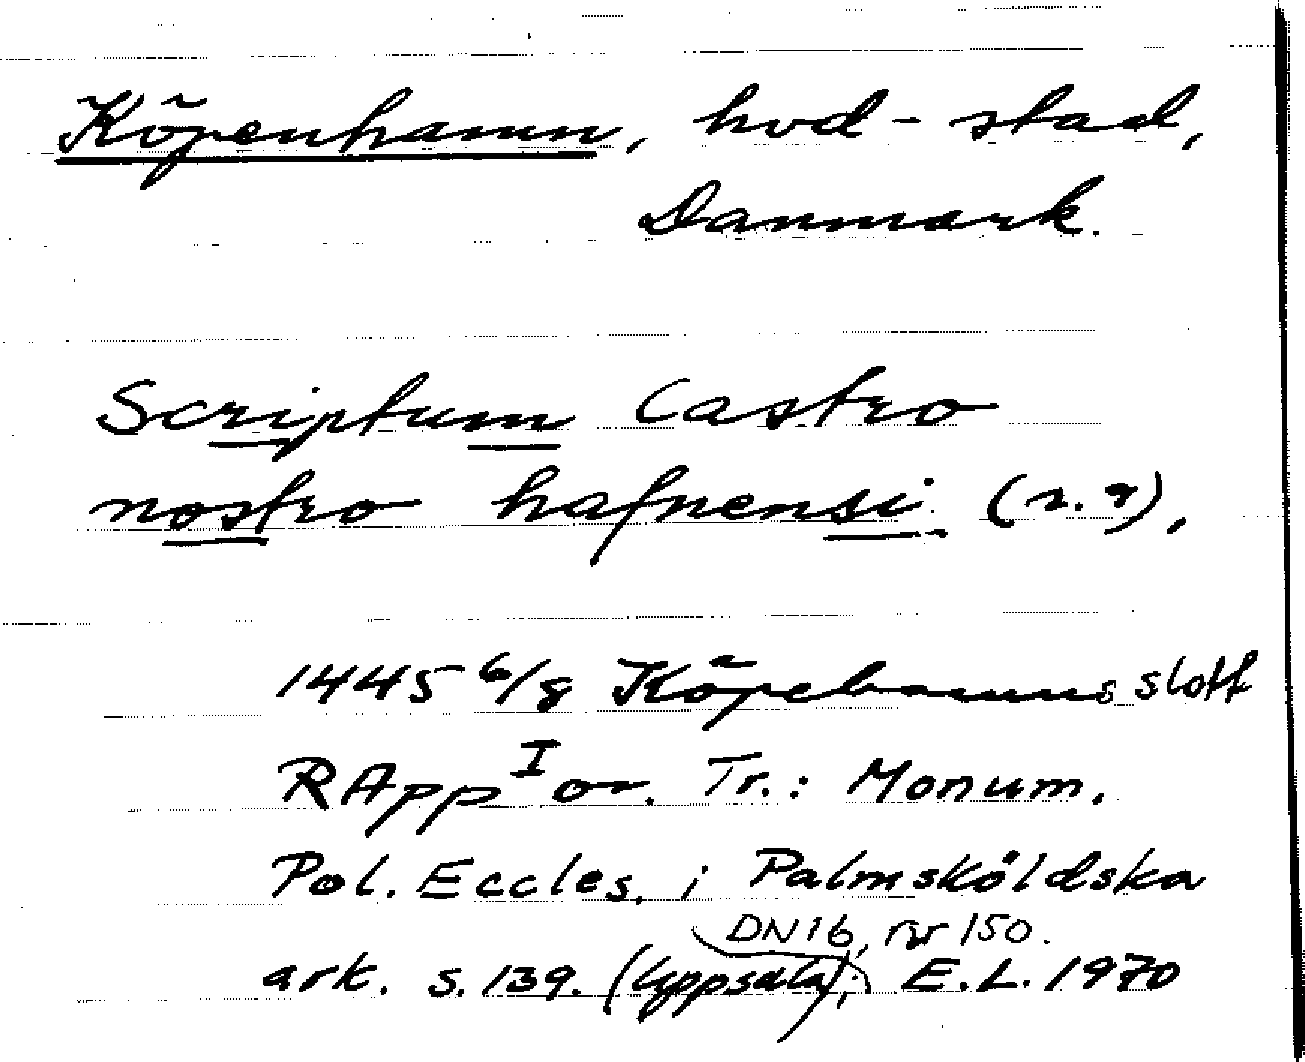 Köpenhamn, hvd-stad,
Danmark.
Scriptum Castro
nostro hafnensi (r. 9),
1445 6/8 Köpehamns slott
RApp I or. Tr.: Monum.
Pol. Eccles. i Palmsköldska
DN 16, nr 150.
ark. s. 139. (Uppsala); E.L. 1970